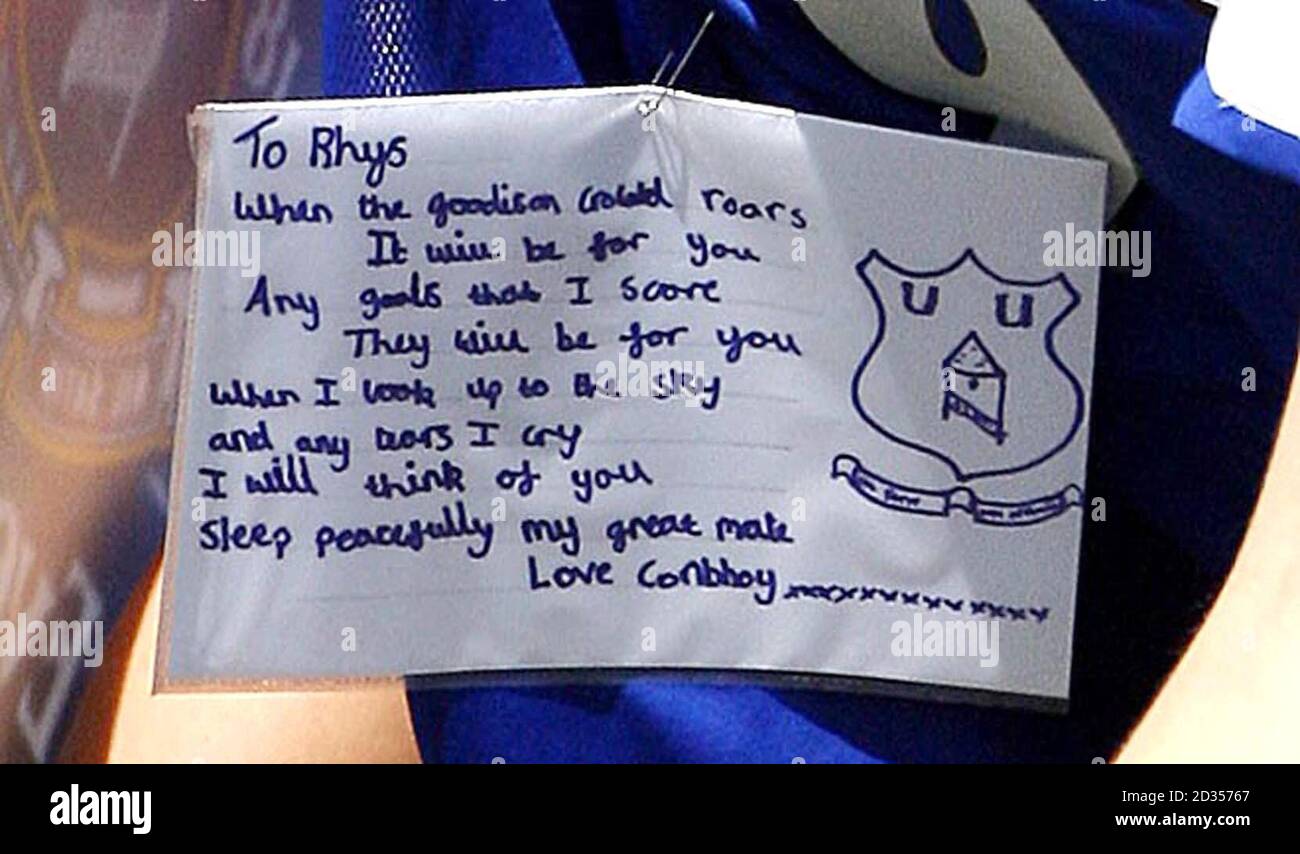 To Rhys
When the goodison crowd roars
It will be for you
Any goals that I score
They will be for you
when I look up to the sky
and any tears I cry
I will think of you
Sleep peacefully my great mate
Love Conbhoy xxxxxxxxxxxxxx
alamy
alamy
a
a
a
a
a
alamy
Image ID: 2D35767
www.alamy.com